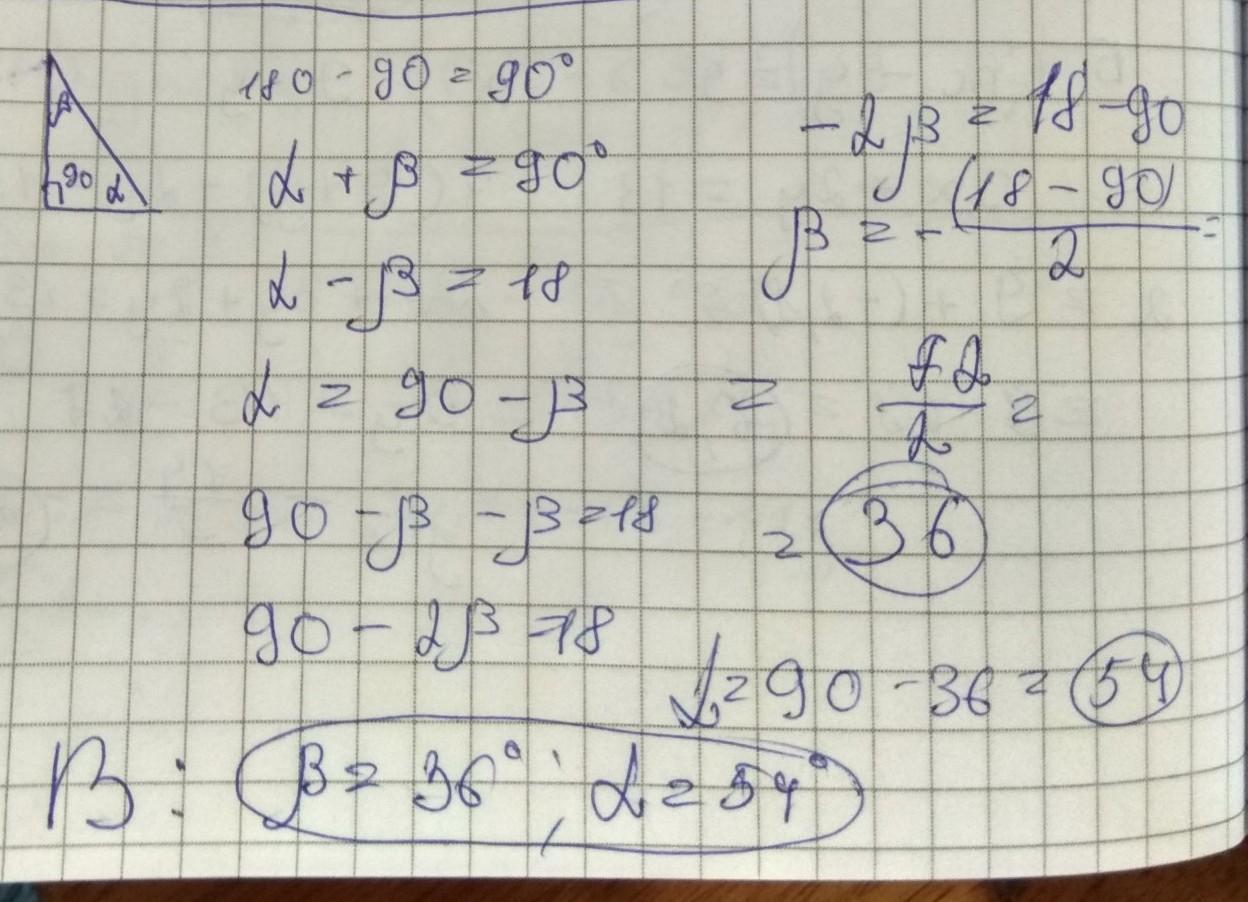 β
90 α
180 - 90 = 90°
α + β = 90°
α - β = 18
α = 90 - β
90 - β - β = 18
90 - 2β = 18
-2β = 18 - 90
β = - (18 - 90) / 2 =
= 72 / 2 =
= 36
α = 90 - 36 = 54
В: β = 36° ; α = 54°